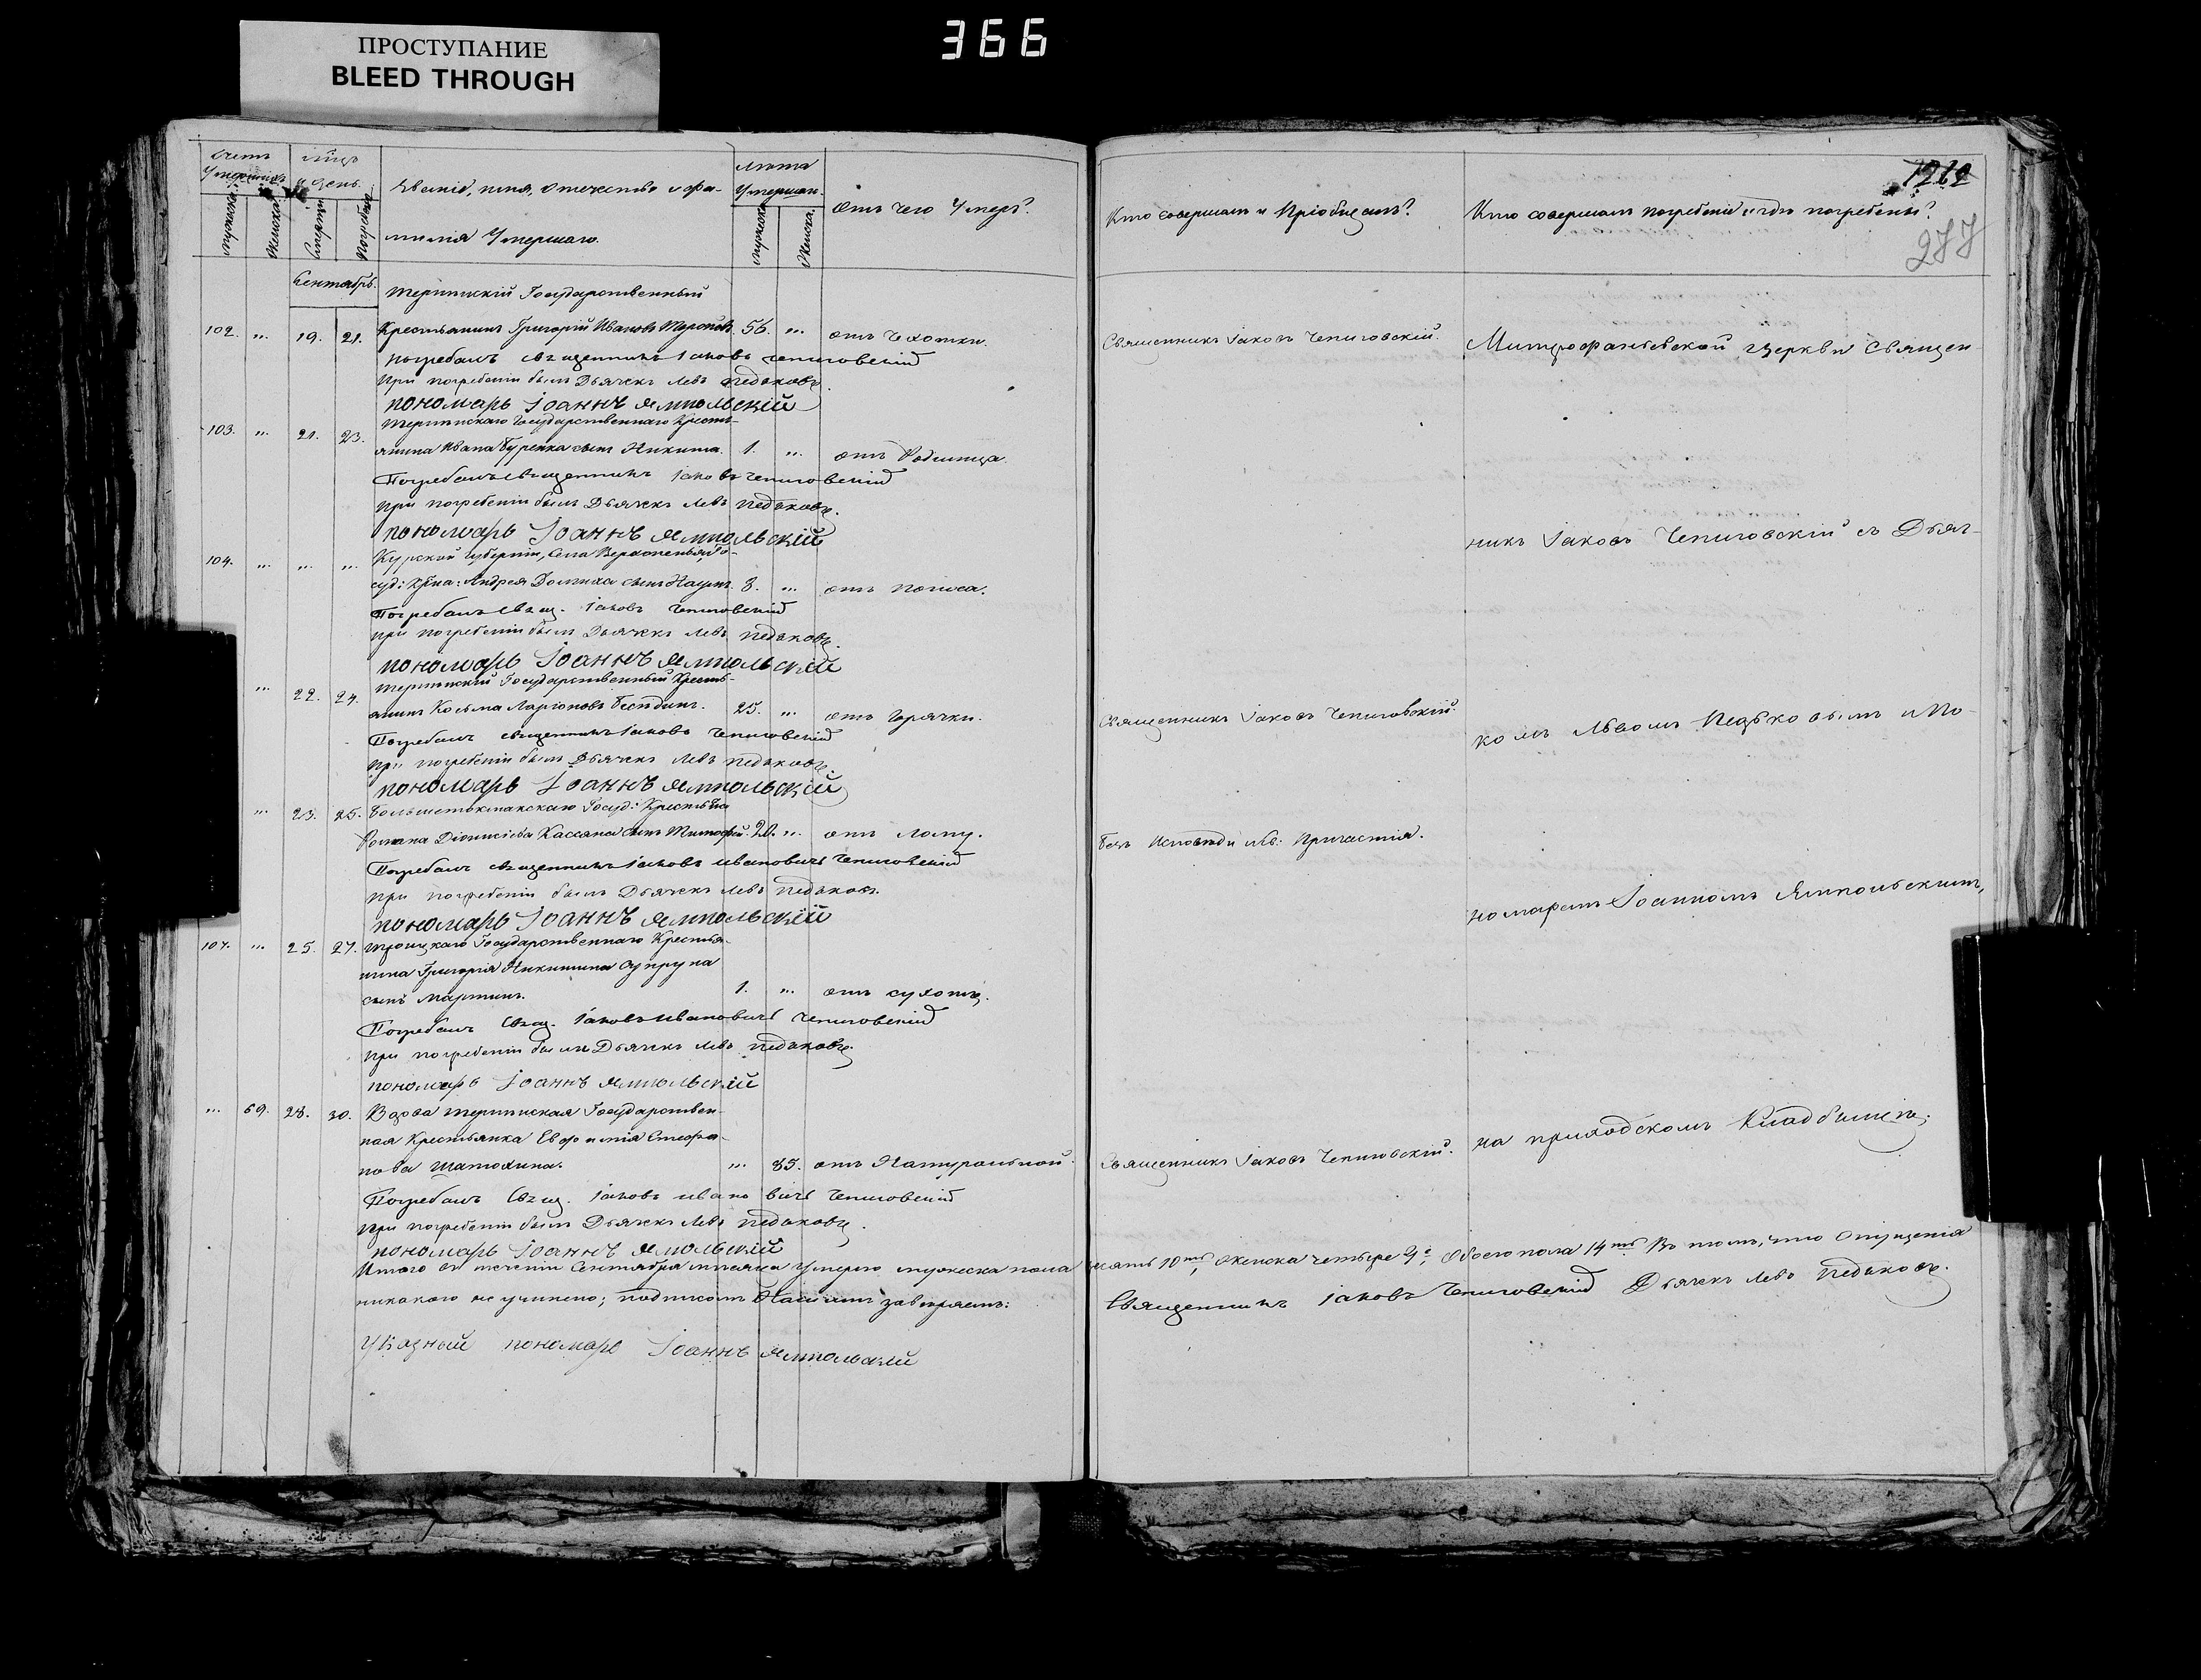 366
ПРОСТУПАНИЕ
BLEED THROUGH
1212
277
Счетъ умершихъ
Мѣсяцъ и день.
Званіе, имя, отечество и фа-
милія Умершаго.
Лѣта Умершаго.
Отъ чего Умеръ?
Кто совершалъ и Пріобщалъ?
Кто совершалъ погребеніе и гдѣ погребены?
Мужска.
Женска.
Смерти
Погребенія
Мужска
Женска.
Сентябрь.
Терпѣнскій Государственный
102. „ 19. 21. Крестьянинъ Григорій Ивановъ 56. „ отъ Чахотки. Священникъ Іаковъ Чепиговскій. Митрофаніевской Церкви Священ-
погребалъ священникъ Іаковъ Чепиговскій
при погребеніи былъ Дьячекъ Левъ Педьковъ.
пономарь Іоаннъ Ямпольскій
103. „ 21. 23. Терпѣнскаго Государственнаго Кресть-
янина Ивана Буренка сынъ Никита. 1. „ отъ Родимца.
Погребалъ священникъ Іаковъ Чепиговскій
при погребеніи былъ Дьячекъ Левъ Педьковъ.
пономарь Іоаннъ Ямпольскій
никъ Іаковъ Чепиговскій съ Дьяч-
104. „ „ „ Курской Губерніи, Села Верхопенья, Го-
суд: Кр-на: Андрея сынъ Наумъ. 3. „ отъ Поноса.
Погребалъ Свящ. Іаковъ Чепиговскій
при погребеніи былъ Дьячекъ Левъ Педьковъ.
пономарь Іоаннъ Ямпольскій
„ 22. 24. Терпѣнскій Государственный Кресть-
янинъ Козьма Ларіоновъ Бесѣдинъ. 25. „ отъ Горячки. Священникъ Іаковъ Чепиговскій.
комъ Львомъ Педьковымъ и По-
Погребалъ священникъ Іаковъ Чепиговскій
при погребеніи былъ Дьячекъ Левъ Педьковъ.
пономарь Іоаннъ Ямпольскій
„ 23. 25. Большетокмакскаго Госуд: Крестьяна
Романа Діонисіева Кассяна сынъ Тимофей. 20. „ отъ лому. Безъ Исповѣди и Св: Причастія.
Погребалъ священникъ Іаковъ Ивановичъ Чепиговскій
при погребеніи былъ Дьячекъ Левъ Педьковъ.
пономарь Іоаннъ Ямпольскій
номаремъ Іоанномъ Ямпольскимъ,
107. „ 25. 27. Троицкаго Государственнаго Крестья-
нина Григорія Никитина Супруна
сынъ Мартинъ. 1. „ отъ сухотъ.
Погребалъ Свящ. Іаковъ Ивановичъ Чепиговскій
при погребеніи былъ Дьячекъ Левъ Педьковъ.
пономарь Іоаннъ Ямпольскій
„ 69. 28. 30. Вдова Терпѣнская Государствен-
ная Крестьянка Евфимія Стефа-
нова Шатохина. „ 85. отъ Натуральной. Священникъ Іаковъ Чепиговскій. на приходскомъ Кладбищѣ.
Погребалъ Свящ. Іаковъ Ивановичъ Чепиговскій
при погребеніи былъ Дьячекъ Левъ Педьковъ.
пономарь Іоаннъ Ямпольскій
Итого въ теченіи Сентября мѣсяца Умерло мужеска пола десять 10ть, Женска четыре, Обоего пола 14ть. Въ томъ, что Опущенія
никакого не учинено; подписомъ Нашимъ завѣряемъ: Священникъ Іаковъ Чепиговскій Дьячекъ Левъ Педьковъ.
Указный пономарь Іоаннъ Ямпольскій